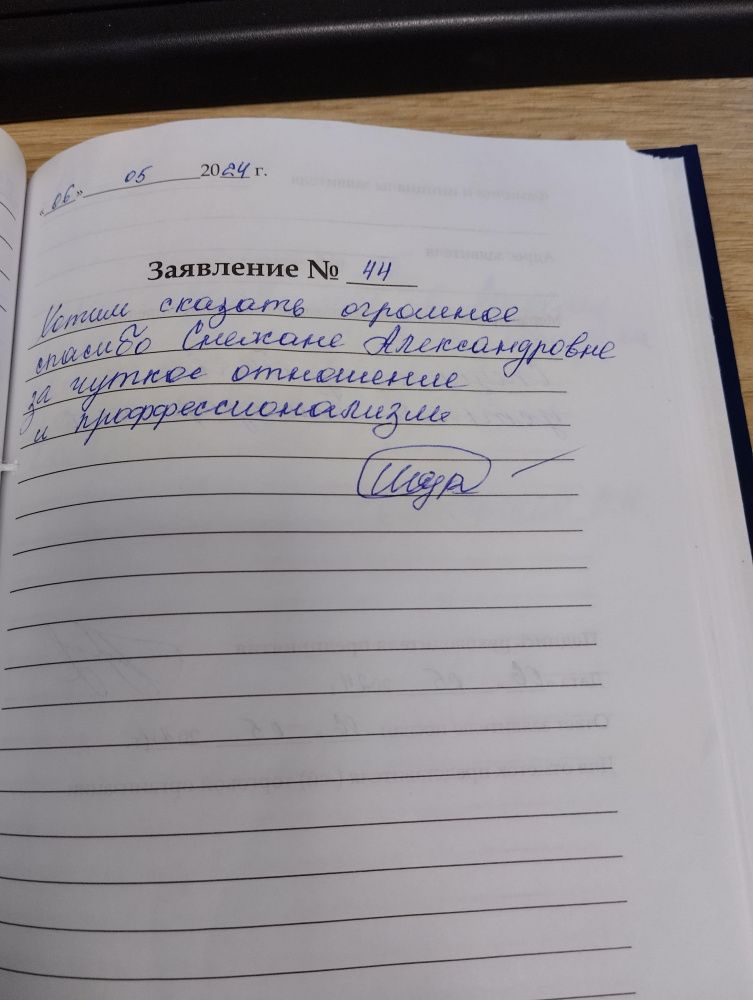 «06» 05 2024 г.
Заявление № 44
Хотим сказать огромное
спасибо Снежане Александровне
за чуткое отношение
и проффессионализм